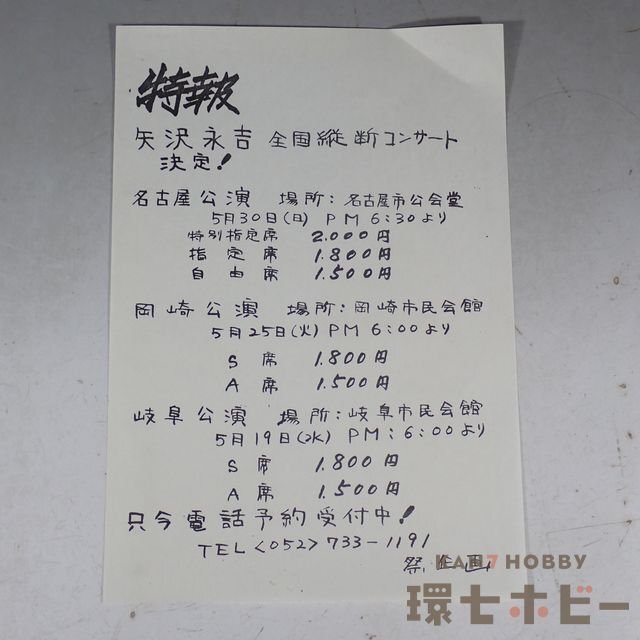 特報
矢沢永吉 全国縦断コンサート
決定!
名古屋公演 場所:名古屋市公会堂
5月30日(日) PM 6:30より
特別指定席 2.000円
指定席 1.800円
自由席 1.500円
岡崎公演 場所:岡崎市民会館
5月25日(火) PM 6:00より
S席 1.800円
A席 1.500円
岐阜公演 場所:岐阜市民会館
5月19日(水) PM:6:00より
S席 1.800円
A席 1.500円
只今電話予約受付中!
TEL<052>733-1191
祭企画
KAN7 HOBBY
環七ホビー